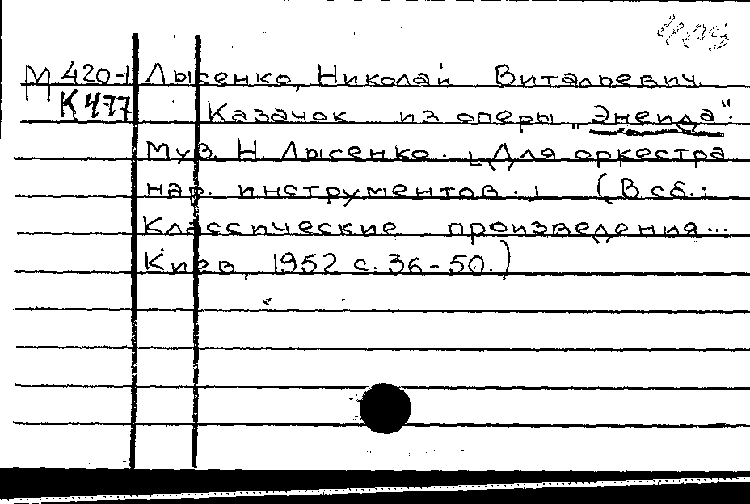 М 420-1 Лысенко, Николай Витальевич
К 477 Казачок из оперы „Энеида".
Муз. Н Лысенко. [Для оркестра
нар. инструментов.] (В сб.:
Классические произведения...
Киев, 1952 с. 36-50.)